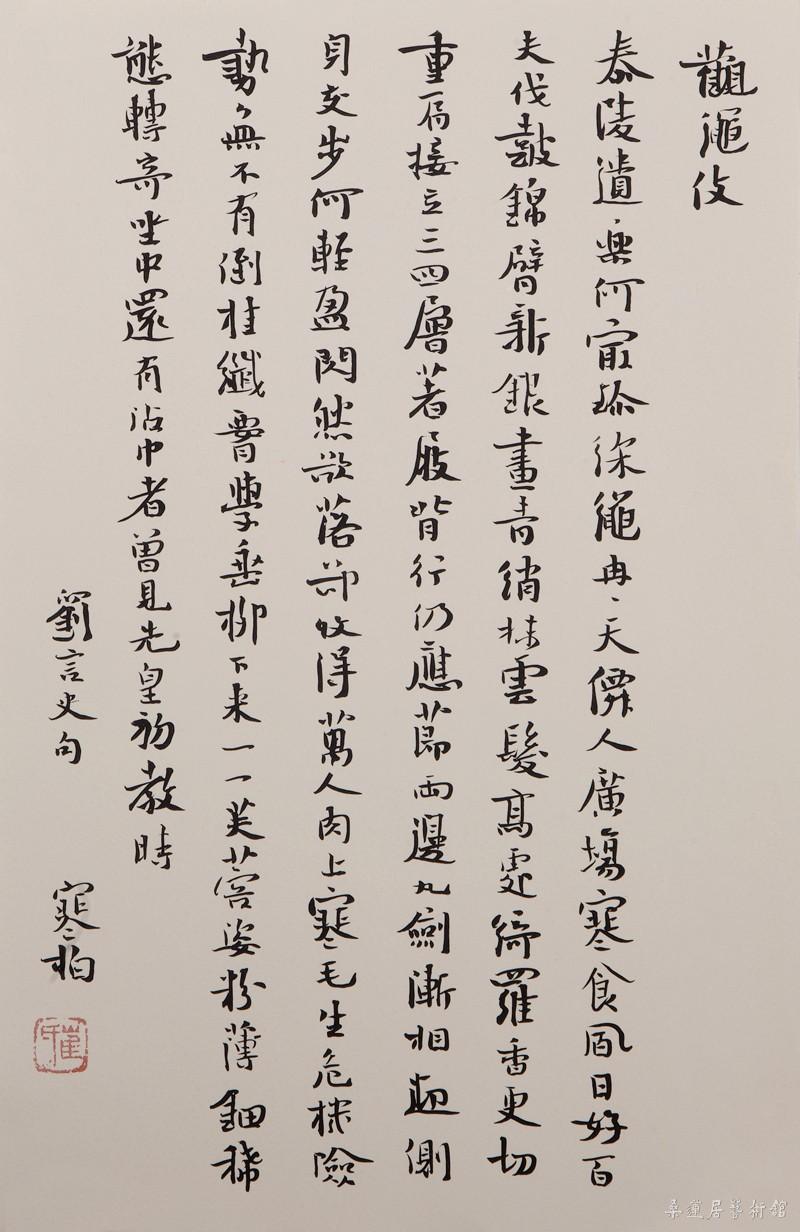 觀繩伎
泰陵遺樂何最珍綵繩冉〻天僊人廣場寒食風日好百
夫伐鼓錦臂新銀畫青綃抹雲髮高處綺羅香更切
重肩接立三四層著屐背行仍應節兩邊丸劍漸相迎側
身交步何輕盈閃然欲落卻收得萬人肉上寒毛生危機險
勢〻無不有倒挂纖腰學垂柳下来一一芙蓉姿粉薄鈿稀
態轉奇坐中還有沾巾者曾見先皇初教時
劉言史句
寒柏
桑蓮居藝術館